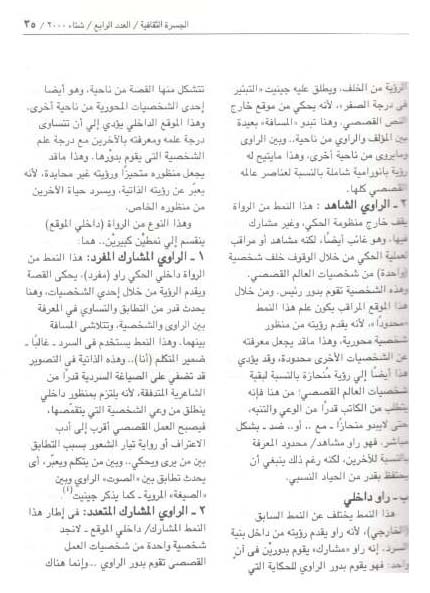 الجسرة الثقافية / العدد الرابع / شتاء ٢٠٠٠ / ٣٥
الرؤية من الخلف، ويطلق عليه جينيت «التبئير
فى درجة الصفر»، لأنه يحكي من موقع خارج
النص القصصي. وهنا تبدو «المسافة» بعيدة
بين المؤلف والراوي من ناحية.. وبين الراوى
ومايروى من ناحية أخرى، وهذا مايتيح له
رؤية بانورامية شاملة بالنسبة لعناصر عالمه
القصصي كلها.
٢ ـ الراوي الشاهد : هذا النمط من الرواة
يقف خارج منظومة الحكي، وغير مشارك
فيها، وهو غائب أيضًا، لكنه مشاهد أو مراقب
لعملية الحكي من خلال الوقوف خلف شخصية
(واحدة) من شخصيات العالم القصصي.
وهذه الشخصية تقوم بدور رئيس. ومن خلال
هذا الموقع المراقب يكون علم هذا النمط
«محدودًا»، لأنه يقدم رؤيته من منظور
شخصية محورية، وهذا ماقد يجعل معرفته
عن الشخصيات الأخرى محدودة، وقد يؤدي
هذا أيضًا إلي رؤية مُنحازة بالنسبة لبقية
شخصيات العالم القصصي: من هنا فإنه
يتطلب من الكاتب قدرًا من الوعي والتنبه،
حتى لايبدو منحازًا ـ مع .. أو.. ضد ـ بشكل
مباشر. فهو راو مشاهد/ محدود المعرفة
بالنسبة للآخرين، لكنه رغم ذلك ينبغي أن
يحتفظ بقدر من الحياد النسبي.
ب ـ راو داخلي
هذا النمط يختلف عن النمط السابق
(الخارجي)، لأنه راو يقدم رؤيته من داخل بنية
السرد. إنه راو «مشارك» يقوم بدورين فى آن
واحد: فهو يقوم بدور الراوي للحكاية التي
تتشكل منها القصة من ناحية، وهو أيضا
إحدى الشخصيات المحورية من ناحية أخرى.
وهذا الموقع الداخلي يؤدي إلي أن تتساوى
درجة علمه ومعرفته بالآخرين مع درجة علم
الشخصية التى يقوم بدوْرها. وهذا ماقد
يجعل منظوره متحيزًا ورؤيته غير محايدة، لأنه
يعبّر عن رؤيته الذاتية، ويسرد حياة الآخرين
من منظوره الخاص.
وهذا النوع من الرواة (داخلي الموقع)
ينقسم إلي نمطيْن كبيريْن.. هما:
١ ـ الراوي المشارك المفرد: هذا النمط من
الرواة داخلي الحكي راو (مفرد)، يحكى القصة
ويقدم الرؤية من خلال إحدي الشخصيات، وهنا
يحدث قدر من التطابق والتساوي في المعرفة
بين الراوى والشخصية، وتتلاشى المسافة
بينهما. وهذا النمط يستخدم فى السرد ـ غالبًا ـ
ضمير المتكلم (أنا).. وهذه الذاتية فى التصوير
قد تضفى على الصياغة السردية قدرًا من
الشاعرية المتدفقة، لأنه يلتزم بمنظور داخلي
ينطلق من وعي الشخصية التي يتقمّصها،
فيصبح العمل القصصي أقرب إلى أدب
الاعتراف أو رواية تيار الشعور بسبب التطابق
بين من يرى ويحكي.. وبين من يتكلم ويعبّر، أى
يحدث تطابق بين «الصوت» الراوي وبين
«الصيغة» المروية ـ كما يذكر جينيت(٤)
٢ ـ الراوي المشارك المتعدد: فى إطار هذا
النمط المشارك/ داخلي الموقع ـ لانجد
شخصية واحدة من شخصيات العمل
القصصي تقوم بدور الراوي .. وإنما هناك